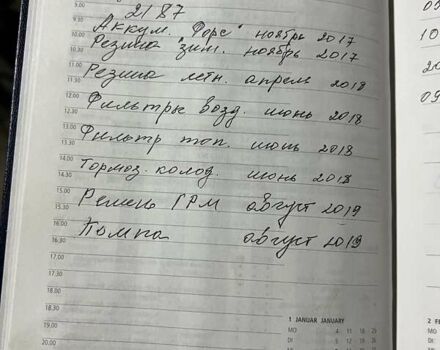 9.00
2187
Аккум. "Форс" ноябрь 2017
10.00
Резина зим. ноябрь 2017
10.30
11.00
Резина летн. апрель 2018
11.30
12.00
Фильтры возд. июнь 2018
12.30
13.00
Фильтр топ. июнь 2018
13.30
14.00
Тормоз. колод. июнь 2018
14.30
15.00
Ремень ГРМ август 2019
15.30
16.00
Помпа август 2019
16.30
17.00
17.30
18.00
18.30
19.00
19.30
20.00
1 JANUAR JANUARY
MO 4 11 18 25
DI 5 12 19 26
2 FE
MO
DI
09
10
20
09